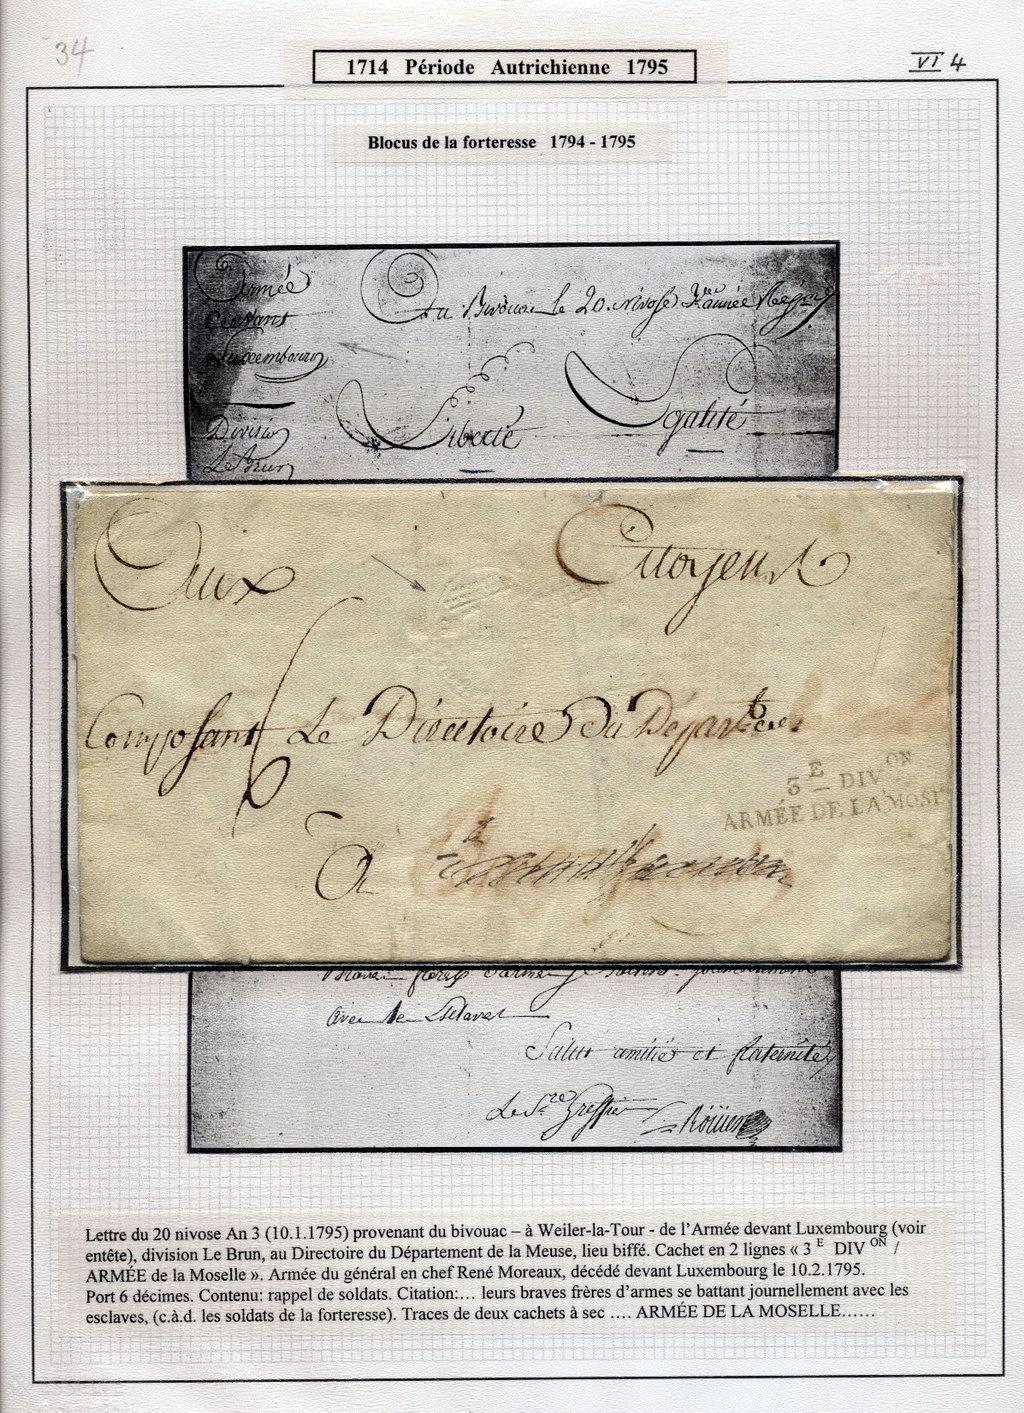 34
1714 Période Autrichienne 1795
VI 4
Blocus de la forteresse 1794 - 1795
Armée
Devant
Luxembourg
Au Bivouac le 20. nivose 3me année
Liberté
Egalité
Division
LeBrun
Aux Citoyens
6
Composant Le Directoire Du Départ
3E DIVON
ARMÉE DE LA MOS
A
avec les Esclaves
Salut amitié et fraternité
Greffier
Lettre du 20 nivose An 3 (10.1.1795) provenant du bivouac – à Weiler-la-Tour - de l’Armée devant Luxembourg (voir
entête), division Le Brun, au Directoire du Département de la Meuse, lieu biffé. Cachet en 2 lignes « 3 E DIV ON /
ARMÉE de la Moselle ». Armée du général en chef René Moreaux, décédé devant Luxembourg le 10.2.1795.
Port 6 décimes. Contenu: rappel de soldats. Citation:… leurs braves frères d’armes se battant journellement avec les
esclaves, (c.à.d. les soldats de la forteresse). Traces de deux cachets à sec …. ARMÉE DE LA MOSELLE……